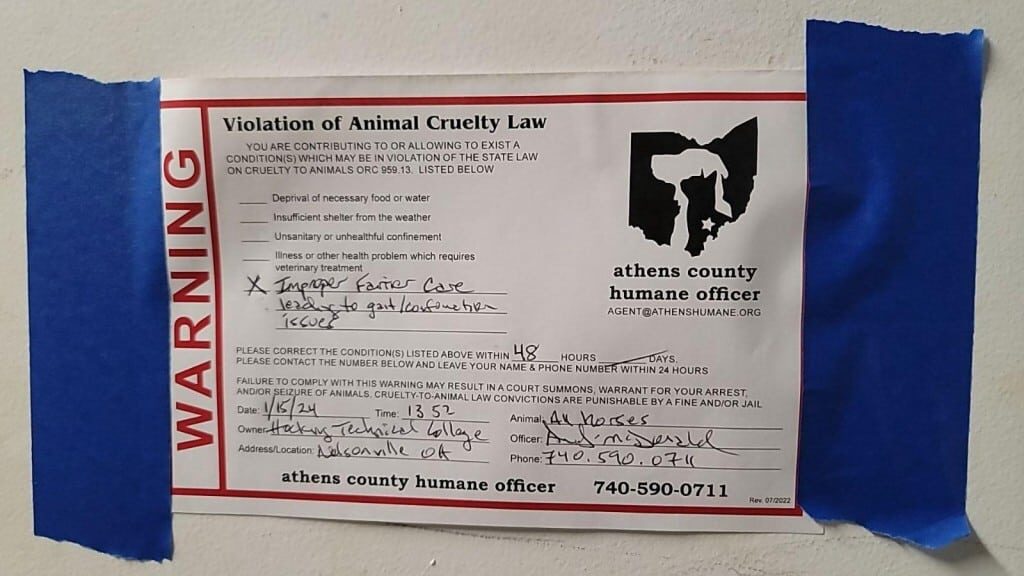 WARNING
Violation of Animal Cruelty Law
YOU ARE CONTRIBUTING TO OR ALLOWING TO EXIST A
CONDITION(S) WHICH MAY BE IN VIOLATION OF THE STATE LAW
ON CRUELTY TO ANIMALS ORC 959.13. LISTED BELOW
____ Deprival of necessary food or water
____ Insufficient shelter from the weather
____ Unsanitary or unhealthful confinement
____ Illness or other health problem which requires
veterinary treatment
X Improper Farrier Care
leading to gait/confirmation
issues
athens county
humane officer
AGENT@ATHENSHUMANE.ORG
PLEASE CORRECT THE CONDITION(S) LISTED ABOVE WITHIN 48 HOURS ____ DAYS.
PLEASE CONTACT THE NUMBER BELOW AND LEAVE YOUR NAME & PHONE NUMBER WITHIN 24 HOURS
FAILURE TO COMPLY WITH THIS WARNING MAY RESULT IN A COURT SUMMONS, WARRANT FOR YOUR ARREST,
AND/OR SEIZURE OF ANIMALS. CRUELTY-TO-ANIMAL LAW CONVICTIONS ARE PUNISHABLE BY A FINE AND/OR JAIL
Date: 1/15/24 Time: 13 52
Owner: Hocking Technical College
Address/Location: Nelsonville OH
Animal: All Horses
Officer:
Phone: 740.590.0711
athens county humane officer 740-590-0711
Rev. 07/2022